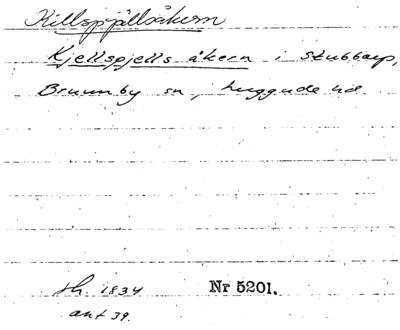 Killspjällsåkern
Kjellspjells åkern i Stubbarp,
Brunnby sn, Luggude hd.
sh. 1834 Nr 5201.
ant 39.